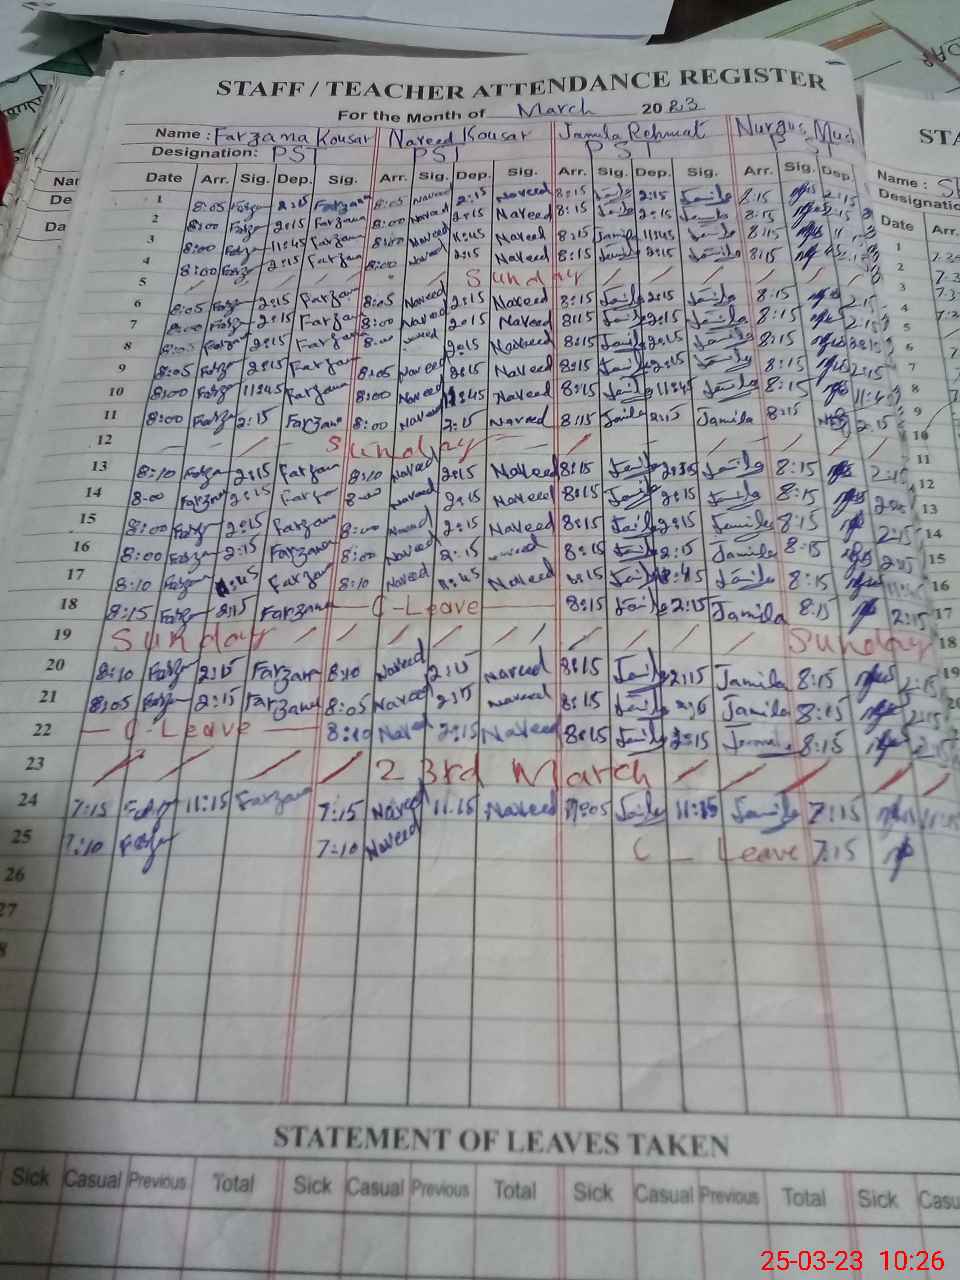 STAFF / TEACHER ATTENDANCE REGISTER
For the Month of March 2023
Name : Farzana Kousar Naveed Kousar Jamila Rehmat Nurgus
Designation: PST PST PST
Date Arr. Sig. Dep. Sig. Arr. Sig. Dep. Sig. Arr. Sig. Dep. Sig. Arr. Sig. Dep.
1 8:05 Farzan 2:15 Farzana 8:05 Naveed 2:15 Naveed 8:15 Jamila 2:15 Jamila 8:15 2:15
2 8:00 Farzan 2:15 Farzana 8:00 Naveed 2:15 Naveed 8:15 Jamila 2:15 Jamila 8:15 2:15
3 8:00 Farzan 11:45 Farzana 8:00 Naveed 11:45 Naveed 8:15 Jamila 11:45 Jamila 8:15
4 8:00 Farzan 2:15 Farzana 8:00 Naveed 2:15 Naveed 8:15 Jamila 2:15 Jamila 8:15
5 Sunday
6 8:05 Farzan 2:15 Farzana 8:05 Naveed 2:15 Naveed 8:15 Jamila 2:15 Jamila 8:15 2:15
7 8:00 Farzan 2:15 Farzana 8:00 Naveed 2:15 Naveed 8:15 Jamila 2:15 Jamila 8:15 2:15
8 8:05 Farzan 2:15 Farzana 8:00 Naveed 2:15 Naveed 8:15 Jamila 2:15 Jamila 8:15 2:15
9 8:05 Farzan 2:15 Farzana 8:05 Naveed 2:15 Naveed 8:15 Jamila 2:15 Jamila 8:15 2:15
10 8:00 Farzan 11:45 Farzana 8:00 Naveed 11:45 Naveed 8:15 Jamila 11:45 Jamila 8:15 11:4
11 8:00 Farzan 2:15 Farzana 8:00 Naveed 2:15 Naveed 8:15 Jamila 2:15 Jamila 8:15 2:15
12 Sunday
13 8:10 Farzan 2:15 Farzana 8:10 Naveed 2:15 Naveed 8:15 Jamila 2:35 Jamila 8:15 2:15
14 8:00 Farzan 2:15 Farzana 8:00 Naveed 2:15 Naveed 8:15 Jamila 2:15 Jamila 8:15
15 8:00 Farzan 2:15 Farzana 8:00 Naveed 2:15 Naveed 8:15 Jamila 2:15 Jamila 8:15 2:15
16 8:00 Farzan 2:15 Farzana 8:00 Naveed 2:15 8:15 Jamila 2:15 Jamila 8:15
17 8:10 Farzan 11:45 Farzana 8:10 Naveed 11:45 Naveed 8:15 Jamila Jamila 8:15
18 8:15 Farzan 2:15 Farzana C-Leave 8:15 Jamila 2:15 Jamila 8:15 2:15
19 Sunday Sunday
20 8:10 Farzan 2:15 Farzana 8:10 Naveed 2:15 Naveed 8:15 Jamila 2:15 Jamila 8:15 2:15
21 8:05 Farzan 2:15 Farzana 8:05 Naveed 2:15 Naveed 8:15 Jamila Jamila 8:15 2:15
22 C-Leave 8:10 Naveed 2:15 Naveed 8:15 Jamila 2:15 Jamila 8:15 2:15
23 23rd March
24 7:15 Farzan 11:15 Farzana 7:15 Naveed 11:15 Naveed 7:05 Jamila 11:15 Jamila 7:15 11:15
25 7:10 Farzan 7:10 Naveed C - Leave 7:15
26
27
STATEMENT OF LEAVES TAKEN
Sick Casual Previous Total Sick Casual Previous Total Sick Casual Previous Total Sick Casu
25-03-23 10:26